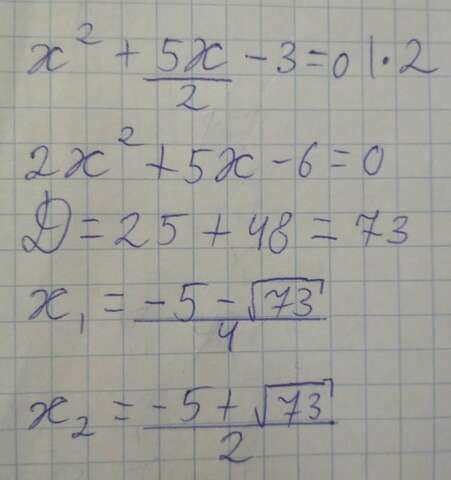 x² + 5x/2 - 3 = 0 | · 2
2x² + 5x - 6 = 0
D = 25 + 48 = 73
x₁ = (-5 - √73)/4
x₂ = (-5 + √73)/2